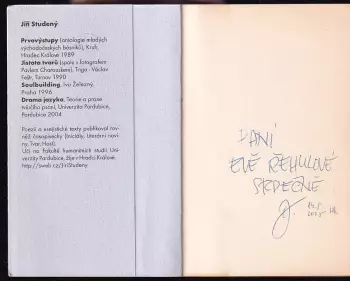 Jiří Studený
Prvovýstupy (antologie mladých
východočeských básníků), Kruh,
Hradec Králové 1989
Jistota tvarů (spolu s fotografem
Pavlem Charouskem), Triga - Václav
Feštr, Turnov 1990
Soulbuilding, Ivo Železný,
Praha 1996
Drama jazyka, Teorie a praxe
tvůrčího psaní, Univerzita Pardubice,
Pardubice 2004
Poezii a esejistické texty publikoval rov-
něž časopisecky (Iniciály, Literární novi-
ny, Tvar, Host).
Učí na Fakultě humanitních studií Uni-
verzity Pardubice, žije v Hradci Králové.
http://sweb.cz/JiriStudeny
PANÍ
EVĚ ŘEHULOVÉ
SRDEČNĚ
2005 HK